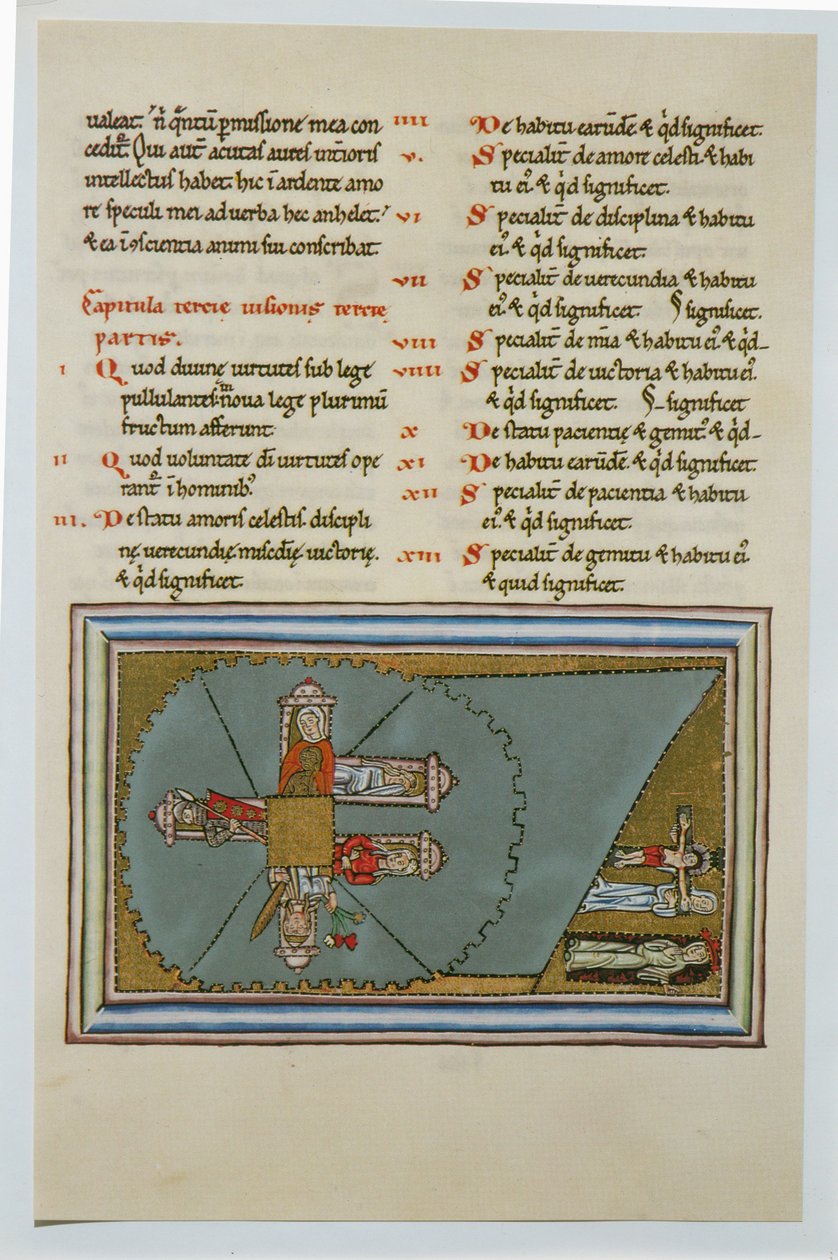 ualeat. n̄ q̄ntū ꝑmissione mea con
cedit᷑. Qui aut̄ acutas aures int̄ioris
intellectus habet. hic ī ardente amo
re speculi mei ad uerba hec anhelet.
& ea ī ꝯscientia animi sui conscribat.
Capitula tercie uisionis tercie
partis.
i Quod diuinę uirtutes sub lege
pullulantes. in noua lege plurimū
fructum afferunt.
ii Quod uoluntate dī uirtutes ope
rant᷑ ī hominibꝰ.
iii. De statu amoris celestis. discipli
nę. uerecundię. misc̄dię. uictorię.
& q̇d significet.
iiii De habitu earūdē. & q̇d significet.
v. Specialit̄ de amore celesti. & habi
tu eiꝰ. & q̇d significet.
vi Specialit̄ de disciplina & habitu
eiꝰ. & q̇d significet.
vii Specialit̄ de uerecundia & habitu
eiꝰ. & q̇d significet. § significet.
viii Specialit̄ de mīa & habitu eiꝰ & q̇d-
viiii Specialit̄ de uictoria & habitu eiꝰ.
& q̇d significet. §- significet
x De statu pacientię & gemitꝰ. & q̇d-
xi De habitu earūdē. & q̇d significet.
xii Specialit̄ de pacientia & habitu
eiꝰ. & q̇d significet.
xiii Specialit̄ de gemitu & habitu eiꝰ.
& quid significet.